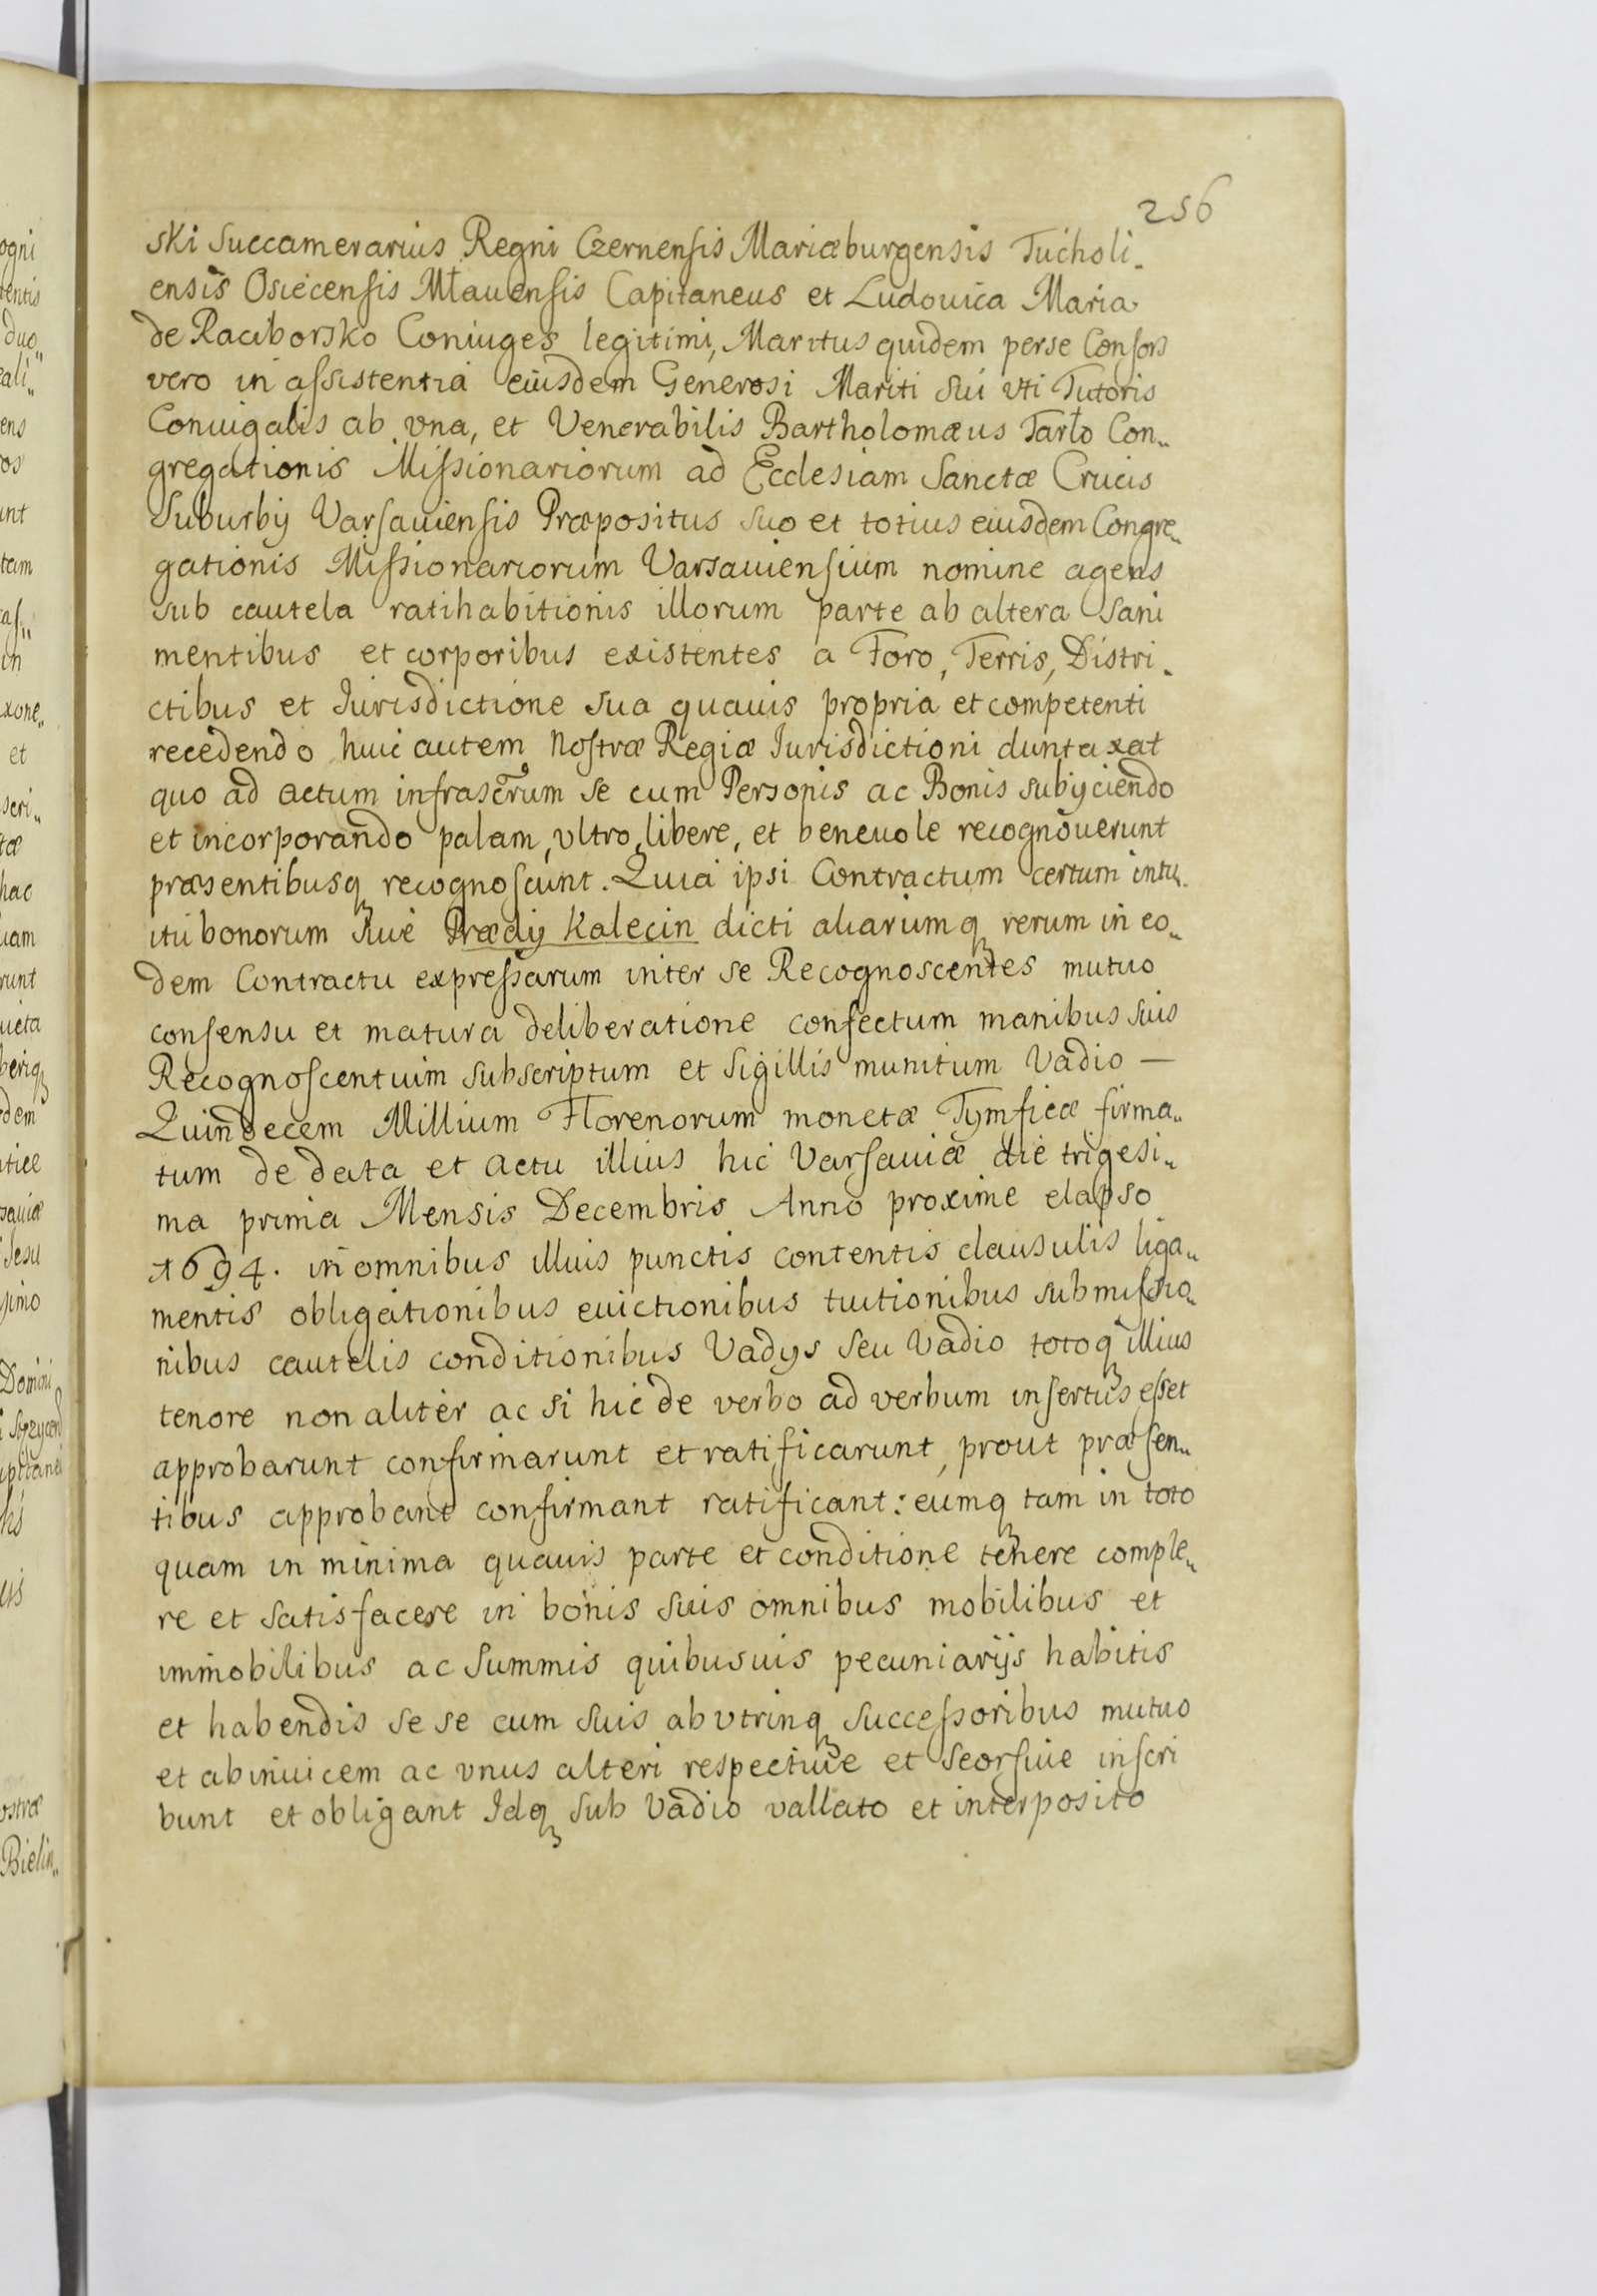 256
ski Succamerarius Regni Czernensis Mariæburgensis Tucholi„
ensis Osiecensis Mławensis Capitaneus et Ludouica Maria
de Raciborsko Coniuges legitimi, Maritus quidem per se Consors
vero in assistentia eiusdem Generosi Mariti sui vti Tutoris
Coniugalis ab vna, et Venerabilis Bartholomæus Tarło Con„
gregationis Missionariorum ad Ecclesiam Sanctæ Crucis
Suburbij Varsauiensis Præpositus suo et totius eiusdem Congre„
gationis Missionariorum Varsauiensium nomine agens
sub cautela ratihabitionis illorum parte ab altera sani
mentibus et corporibus existentes a Foro, Terris, Distri„
ctibus et Iurisdictione sua quauis propria et competenti
recedendo huic autem Nostræ Regiæ Iurisdictioni duntaxat
quo ad actum infrascrm̃ se cum Personis ac Bonis subijciendo
et incorporando palam, vltro, libere, et beneuole recognouerunt
præsentibusq recognoscunt. Quia ipsi Contractum certum intu„
itu bonorum siue Prædij Kalecin dicti aliarumq rerum in eo„
dem Contractu expressarum inter se Recognoscentes mutuo
consensu et matura deliberatione confectum manibus suis
Recognoscentium subscriptum et Sigillis munitum Vadio —
Quindecem Millium Florenorum monetæ Tymficæ firma„
tum de data et actu illius hic Varsauiæ die trigesi„
ma prima Mensis Decembris Anno proxime elapso
1694. in omnibus illius punctis contentis clausulis liga„
mentis obligationibus euictionibus tuitionibus submissio„
nibus cautelis conditionibus Vadys seu Vadio totoq illius
tenore non aliter ac si hic de verbo ad verbum insertus esset
approbarunt confirmarunt et ratificarunt, prout præsen„
tibus approbant confirmant ratificant: eumq tam in toto
quam in minima quauis parte et conditione tenere comple„
re et satisfacere in bonis suis omnibus mobilibus et
immobilibus ac Summis quibusuis pecuniarijs habitis
et habendis se se cum suis ab vtrinq successoribus mutuo
et ab inuicem ac vnus alteri respectiue et seorsiue inscri
bunt et obligant Idq sub Vadio vallato et interposito